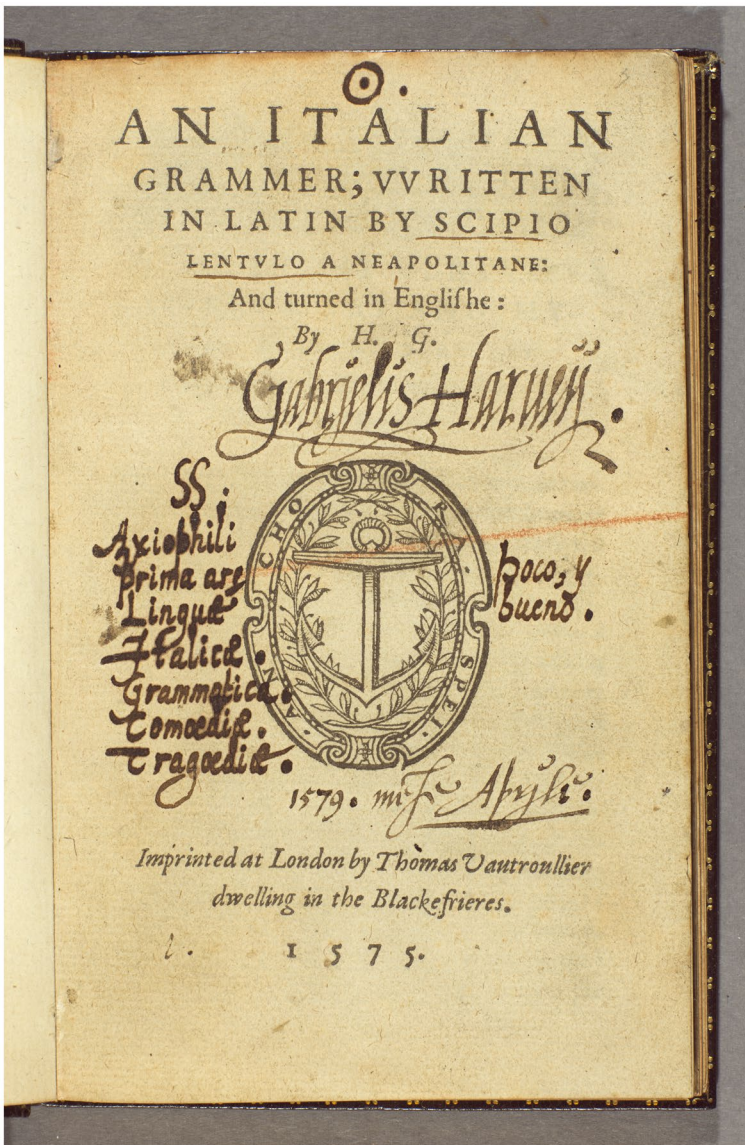 AN ITALIAN
GRAMMER; VVRITTEN
IN LATIN BY SCIPIO
LENTVLO A NEAPOLITANE:
And turned in Engliſhe:
By H. G.
Gabrielis Harueij.
SS.
Axiophili
prima ars
Linguæ
Italicæ.
Grammatica.
Comœdiæ.
Tragœdiæ.
ANCHORA SPEI.
poco, y
bueno.
1579. meſe Aprili.
Imprinted at London by Thomas Vautroullier
dwelling in the Blackefrieres.
1575.